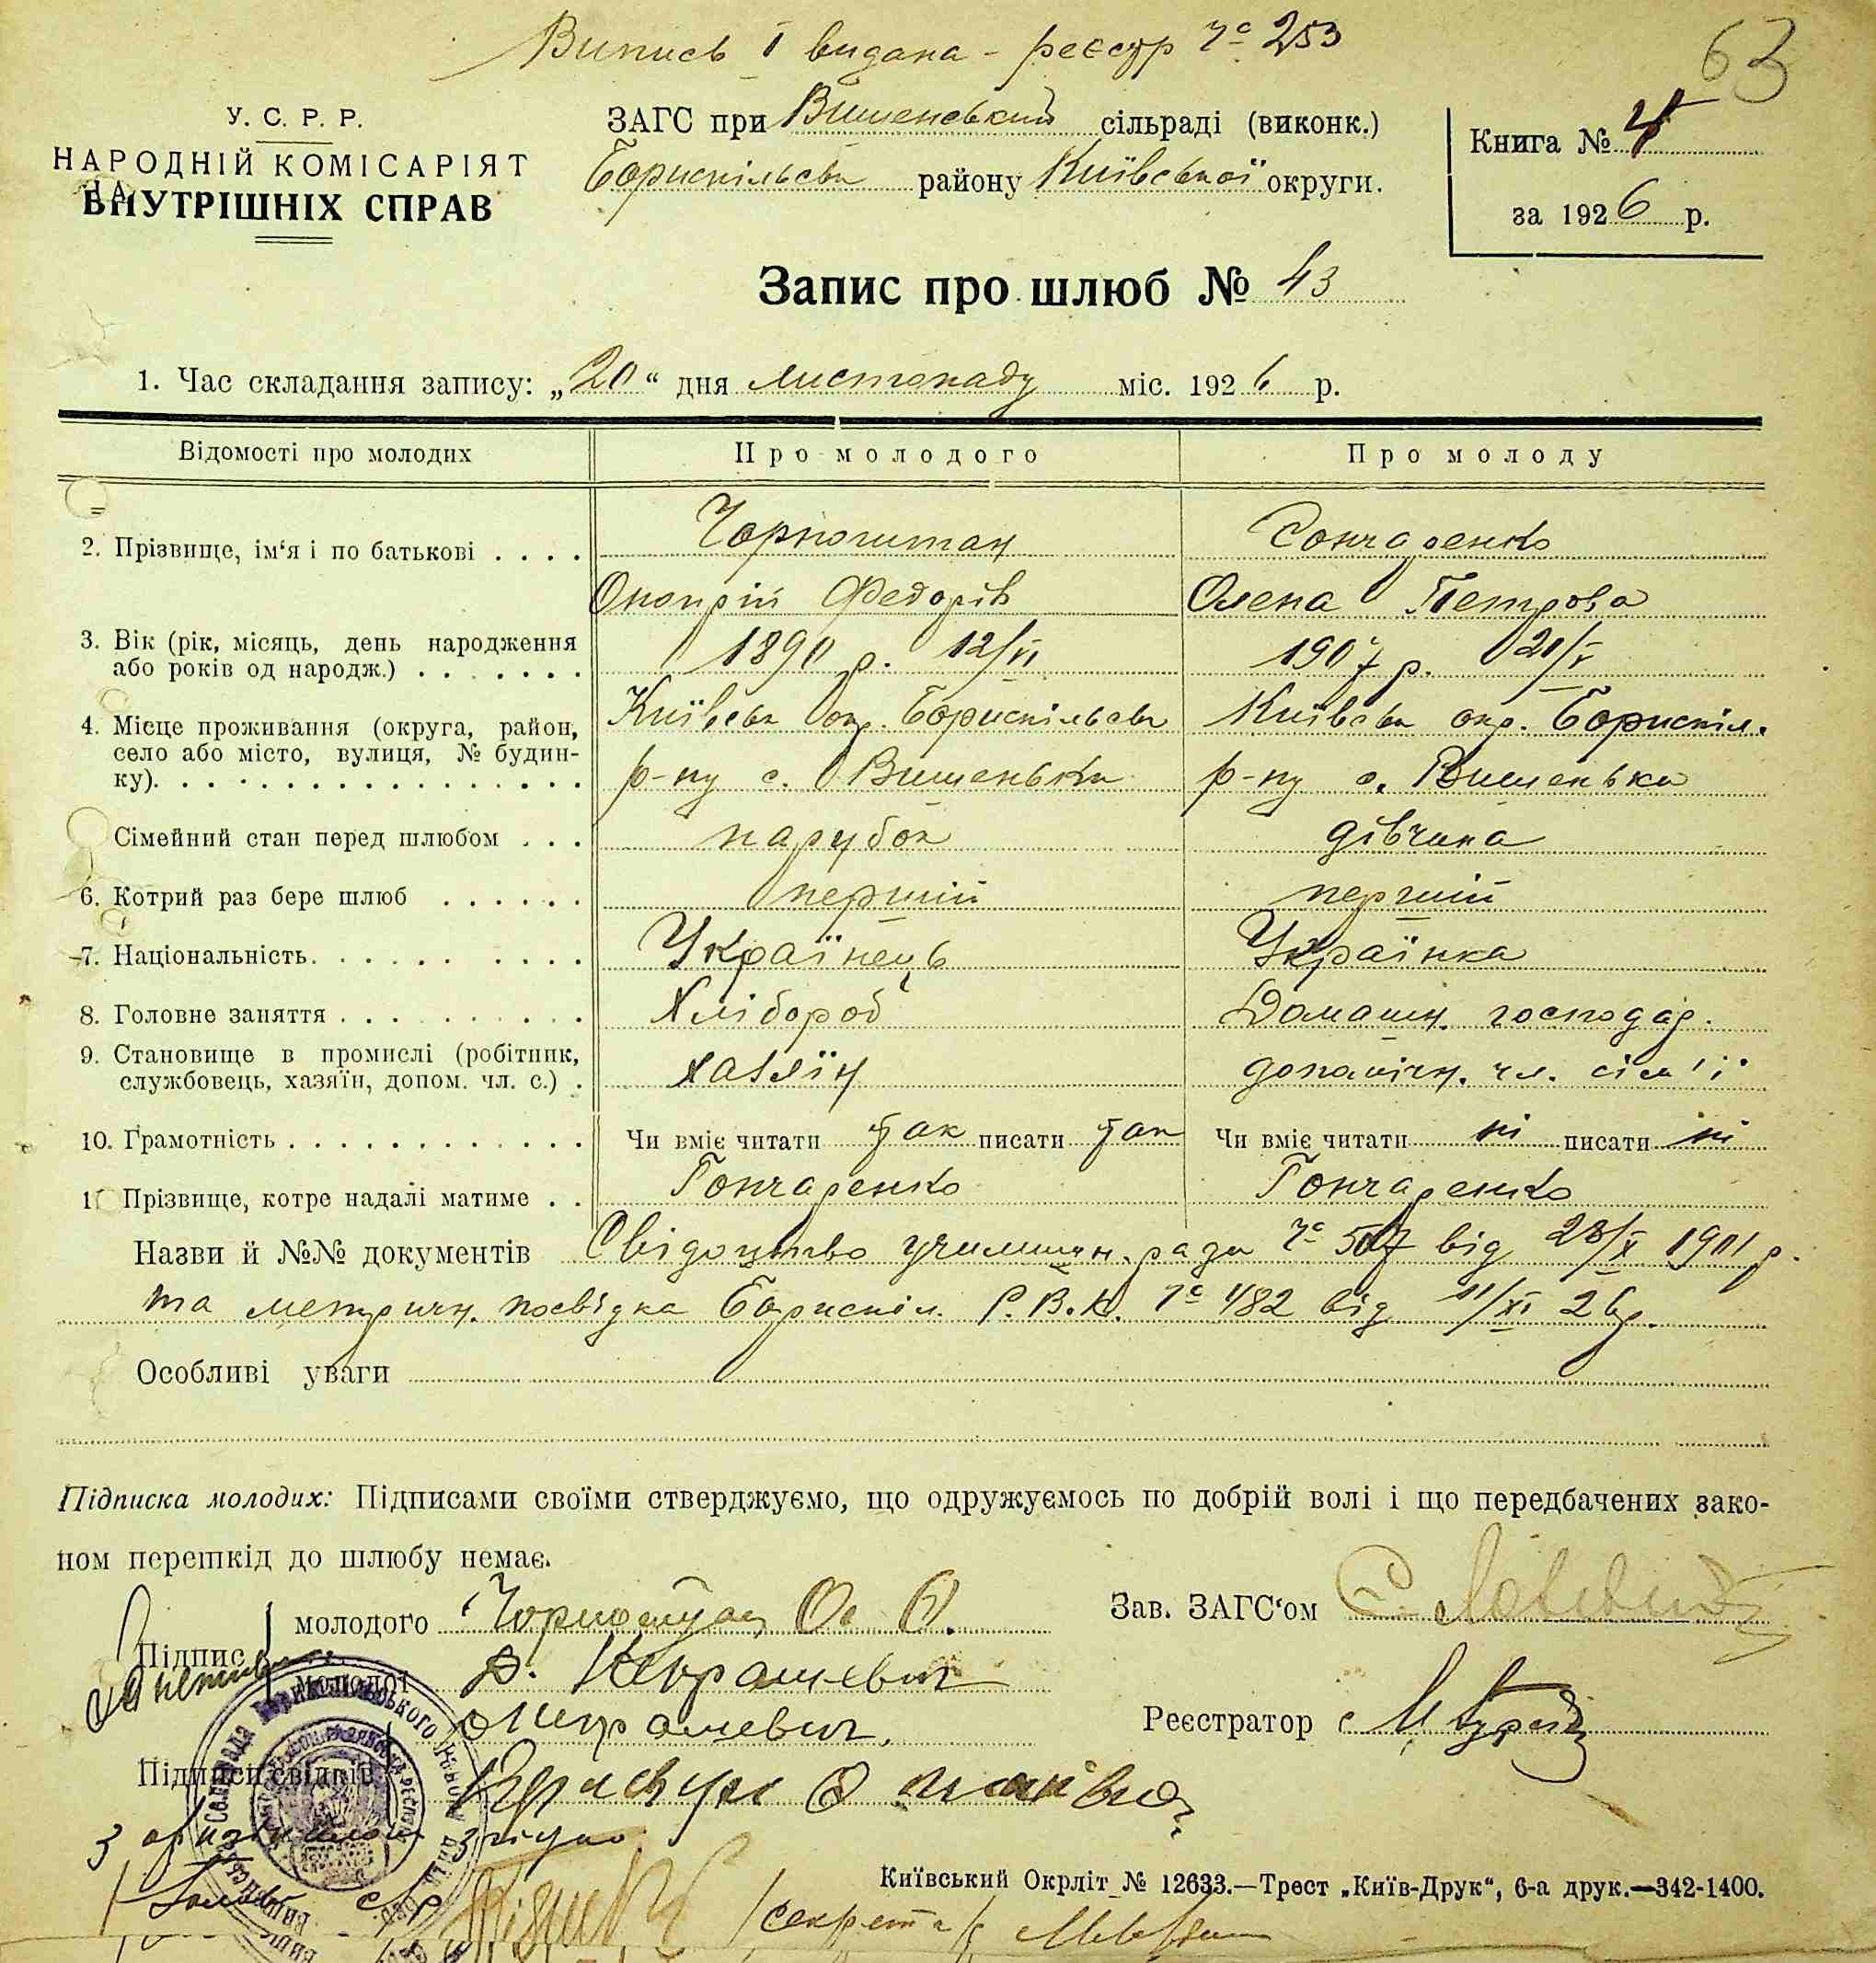 Випись І видана - реєстр № 253
63
У. С. Р. Р.
НАРОДНІЙ КОМІСАРІЯТ
ВНУТРІШНІХ СПРАВ
ЗАГС при Вишенський сільраді (виконк.)
Бориспільськ району Київської округи.
Книга № 4
за 1926 р.
Запис про шлюб № 43
1. Час складання запису: „20“ дня листопаду міс. 1926 р.
Відомості про молодих Про молодого Про молоду
2. Прізвище, ім‘я і по батькові . . . . Чорноштан Гончаренко
Онопрій Федорів Олена Петрова
3. Вік (рік, місяць, день народження
або років од народж.) . . . . . . . 1890 р. 12/VI 1907 р. 20/V
4. Місце проживання (округа, район, Київськ окр. Бориспільськ Київськ окр. Бориспіл.
село або місто, вулиця, № будин-
ку). . . . . . . . . . . . . . . . . р-ну с. Вишеньки р-ну с. Вишеньки
Сімейний стан перед шлюбом . . . парубок дівчина
6. Котрий раз бере шлюб . . . . . . перший перший
7. Національність. . . . . . . . . . Українець Українка
8. Головне заняття . . . . . . . . . . Хлібороб Домашн. господар.
9. Становище в промислі (робітник,
службовець, хазяїн, допом. чл. с.) . хазяїн допоміжн. чл. сім'ї
10. Грамотність . . . . . . . . . . . . Чи вміє читати так писати так Чи вміє читати ні писати ні
11 Прізвище, котре надалі матиме . . Гончаренко Гончаренко
Назви й №№ документів Свідоцтво училищн. ради № 507 від 23/X 1901 р.
та метричн. посвідка Бориспіл. Р.В.К. № 1182 від 11/XI 26 р.
Особливі уваги
Підписка молодих: Підписами своїми стверджуємо, що одружуємось по добрій волі і що передбачених зако-
ном перешкід до шлюбу немає.
Підпис молодого Чорноштан О.
молодої
Зав. ЗАГС‘ом
Реєстратор
Підписи свідків
З оригіналом згідно
Голова с/р
/секретар/
Київський Окрліт № 12633.—Трест „Київ-Друк“, 6-а друк.—342-1400.